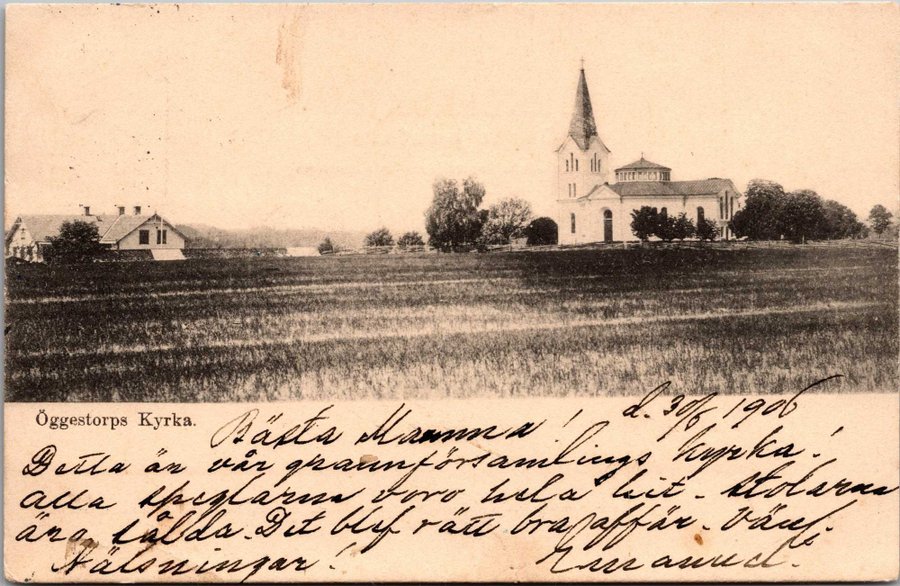 Öggestorps Kyrka.
Bästa Mamma! d. 30/5 1906
Detta är vår grannförsamlings kyrka!
alla speglarna voro hela hit - stolarna
äro sålda. Det blef rätt bra affär. Vänl.
Hälsningar! Emanuel